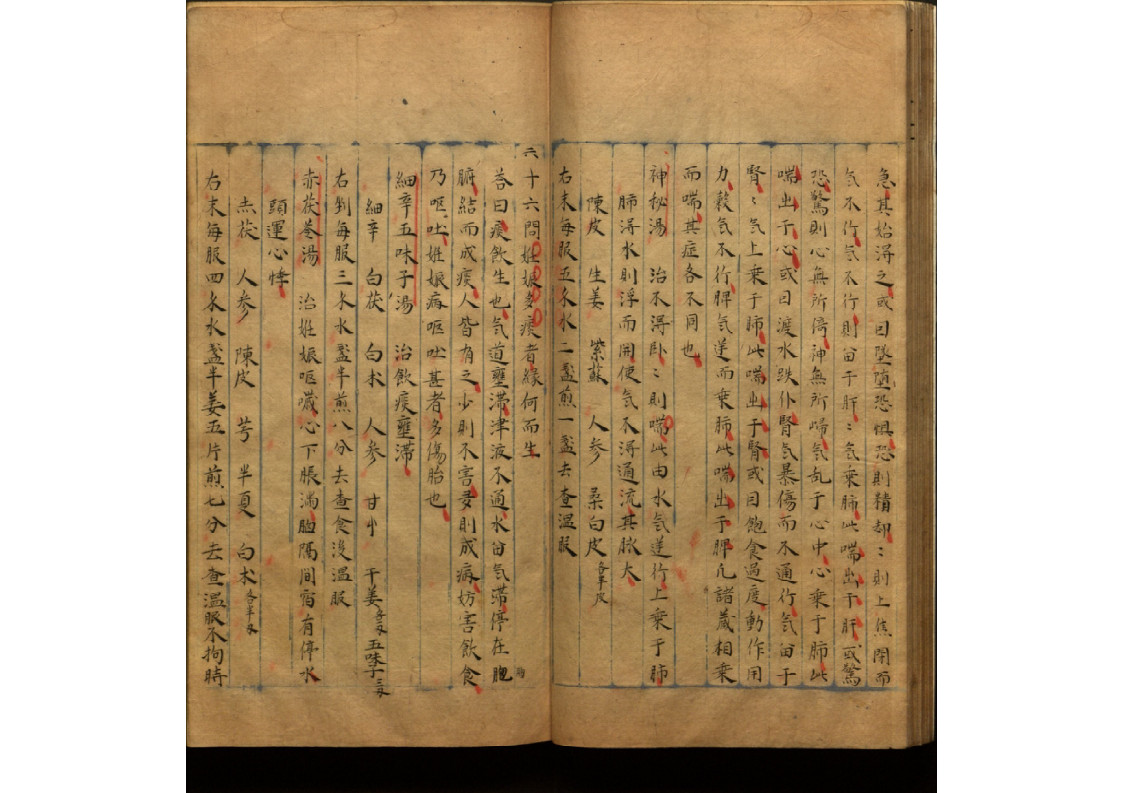 急其始淂之或因墜堕恐惧恐則精却〻則上焦閉而
気不行気不行則留于肝〻気乗肺此喘出于肝或驚
恐驚則心無所倚神無所歸気乱于心中心乗于肺此
喘出于心或因渡水跌仆腎気暴傷而不通行気留于
腎〻気上乗于肺此喘出于腎或因飽食過度動作用
力穀気不行脾気逆而乗肺此喘出于脾凢諸蔵相乗
而喘其症各不同也
神秘湯 治不淂卧〻則喘此由水気逆行上乗于肺
肺得水則浮而開使気不淂通流其脉大
陳皮 生姜 紫蘇 人参 桑白皮
右末每服五水二盞煎一盞去查温服
六十六問妊娠多痰者縁何而生
荅曰痰飲生也気道壅滞津液不通水留気滞停在胞
腑結而成痰人皆有之少則不害多則成病妨害飲食
乃嘔吐妊娠病嘔吐甚者多傷胎也
細辛五味子湯 治飲痰壅滞
細辛 白茯 白术 人参 甘 干姜 五味子
右剉每服三水盞半煎八分去查食後温服
赤茯苓湯 治妊娠嘔噦心下脹滿胸隔間宿有停水
頭運心悸
赤茯 人参 陳皮 芎 半夏 白术
右末每服四水盞半姜五片煎七分去查温服不拘時